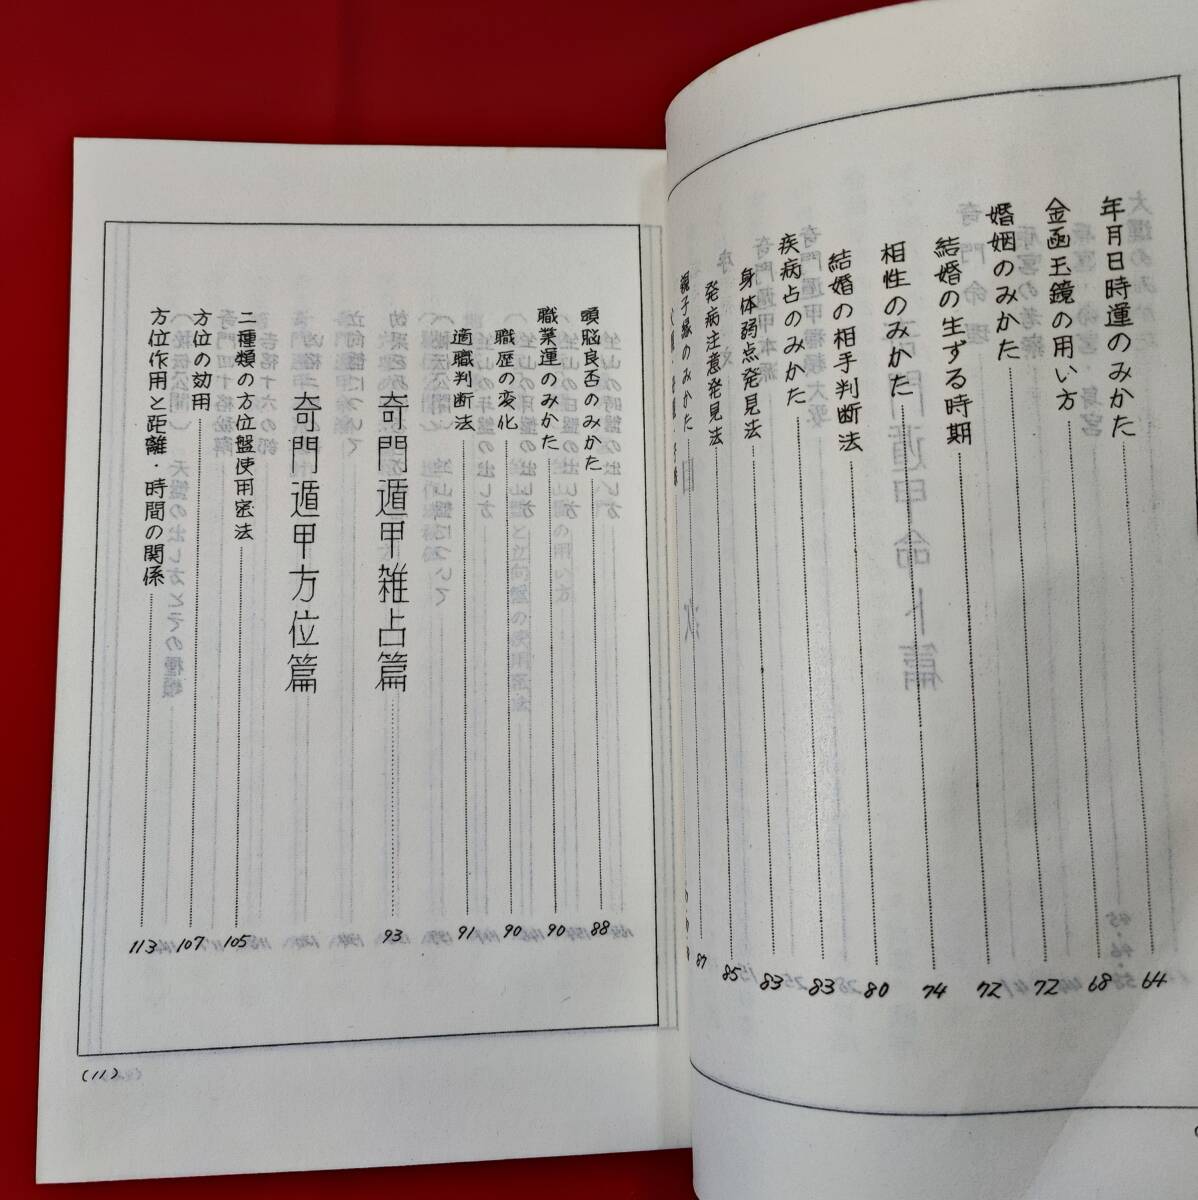 年月日時運のみかた 64
金函玉鏡の用い方 68
婚姻のみかた 72
結婚の生ずる時期 72
相性のみかた 74
結婚の相手判断法 80
疾病占のみかた 83
身体弱点発見法 83
発病注意発見法 85
親子縁のみかた 87
頭脳良否のみかた 88
職業運のみかた 90
職歴の変化 90
適職判断法 91
奇門遁甲雑占篇 93
奇門遁甲方位篇
二種類の方位盤使用密法 105
方位の効用 107
方位作用と距離・時間の関係 113
(11)